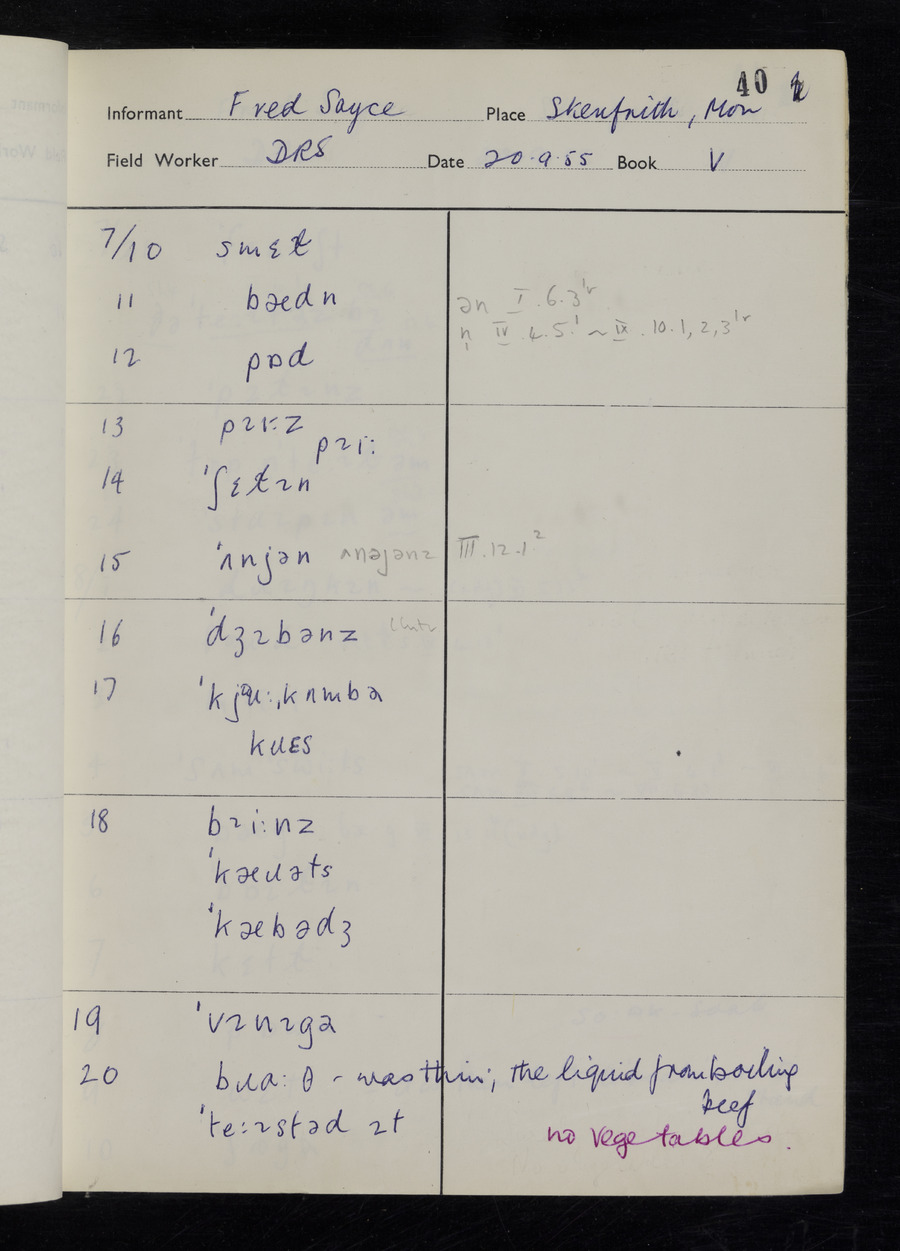 40
Informant Fred Sayce Place Skenfrith, Mon
Field Worker DRS Date 20.9.55 Book V
7/10 smɛɫ
11 bædn
ən I.6.3
n̩ IV.4.5 ~ IX.10.1, 2, 3
12 pɒd
13 pɪɪ:z
pɪɪ:
14 ˈʃɛɫɪn
15 ˈʌnjən ʌnəjənz III.12.1²
16 ˈdʒɪbənz
17 ˈkjəu:ˌkʌmbə
kɹɛs
18 bɪi:nz
ˈkæɹəts
ˈkæbədʒ
19 ˈvɪnɪgə
20 bɹɑ:θ - was thin; the liquid from boiling
beef
ˈte:ɪstəd ɪt no vegetables.